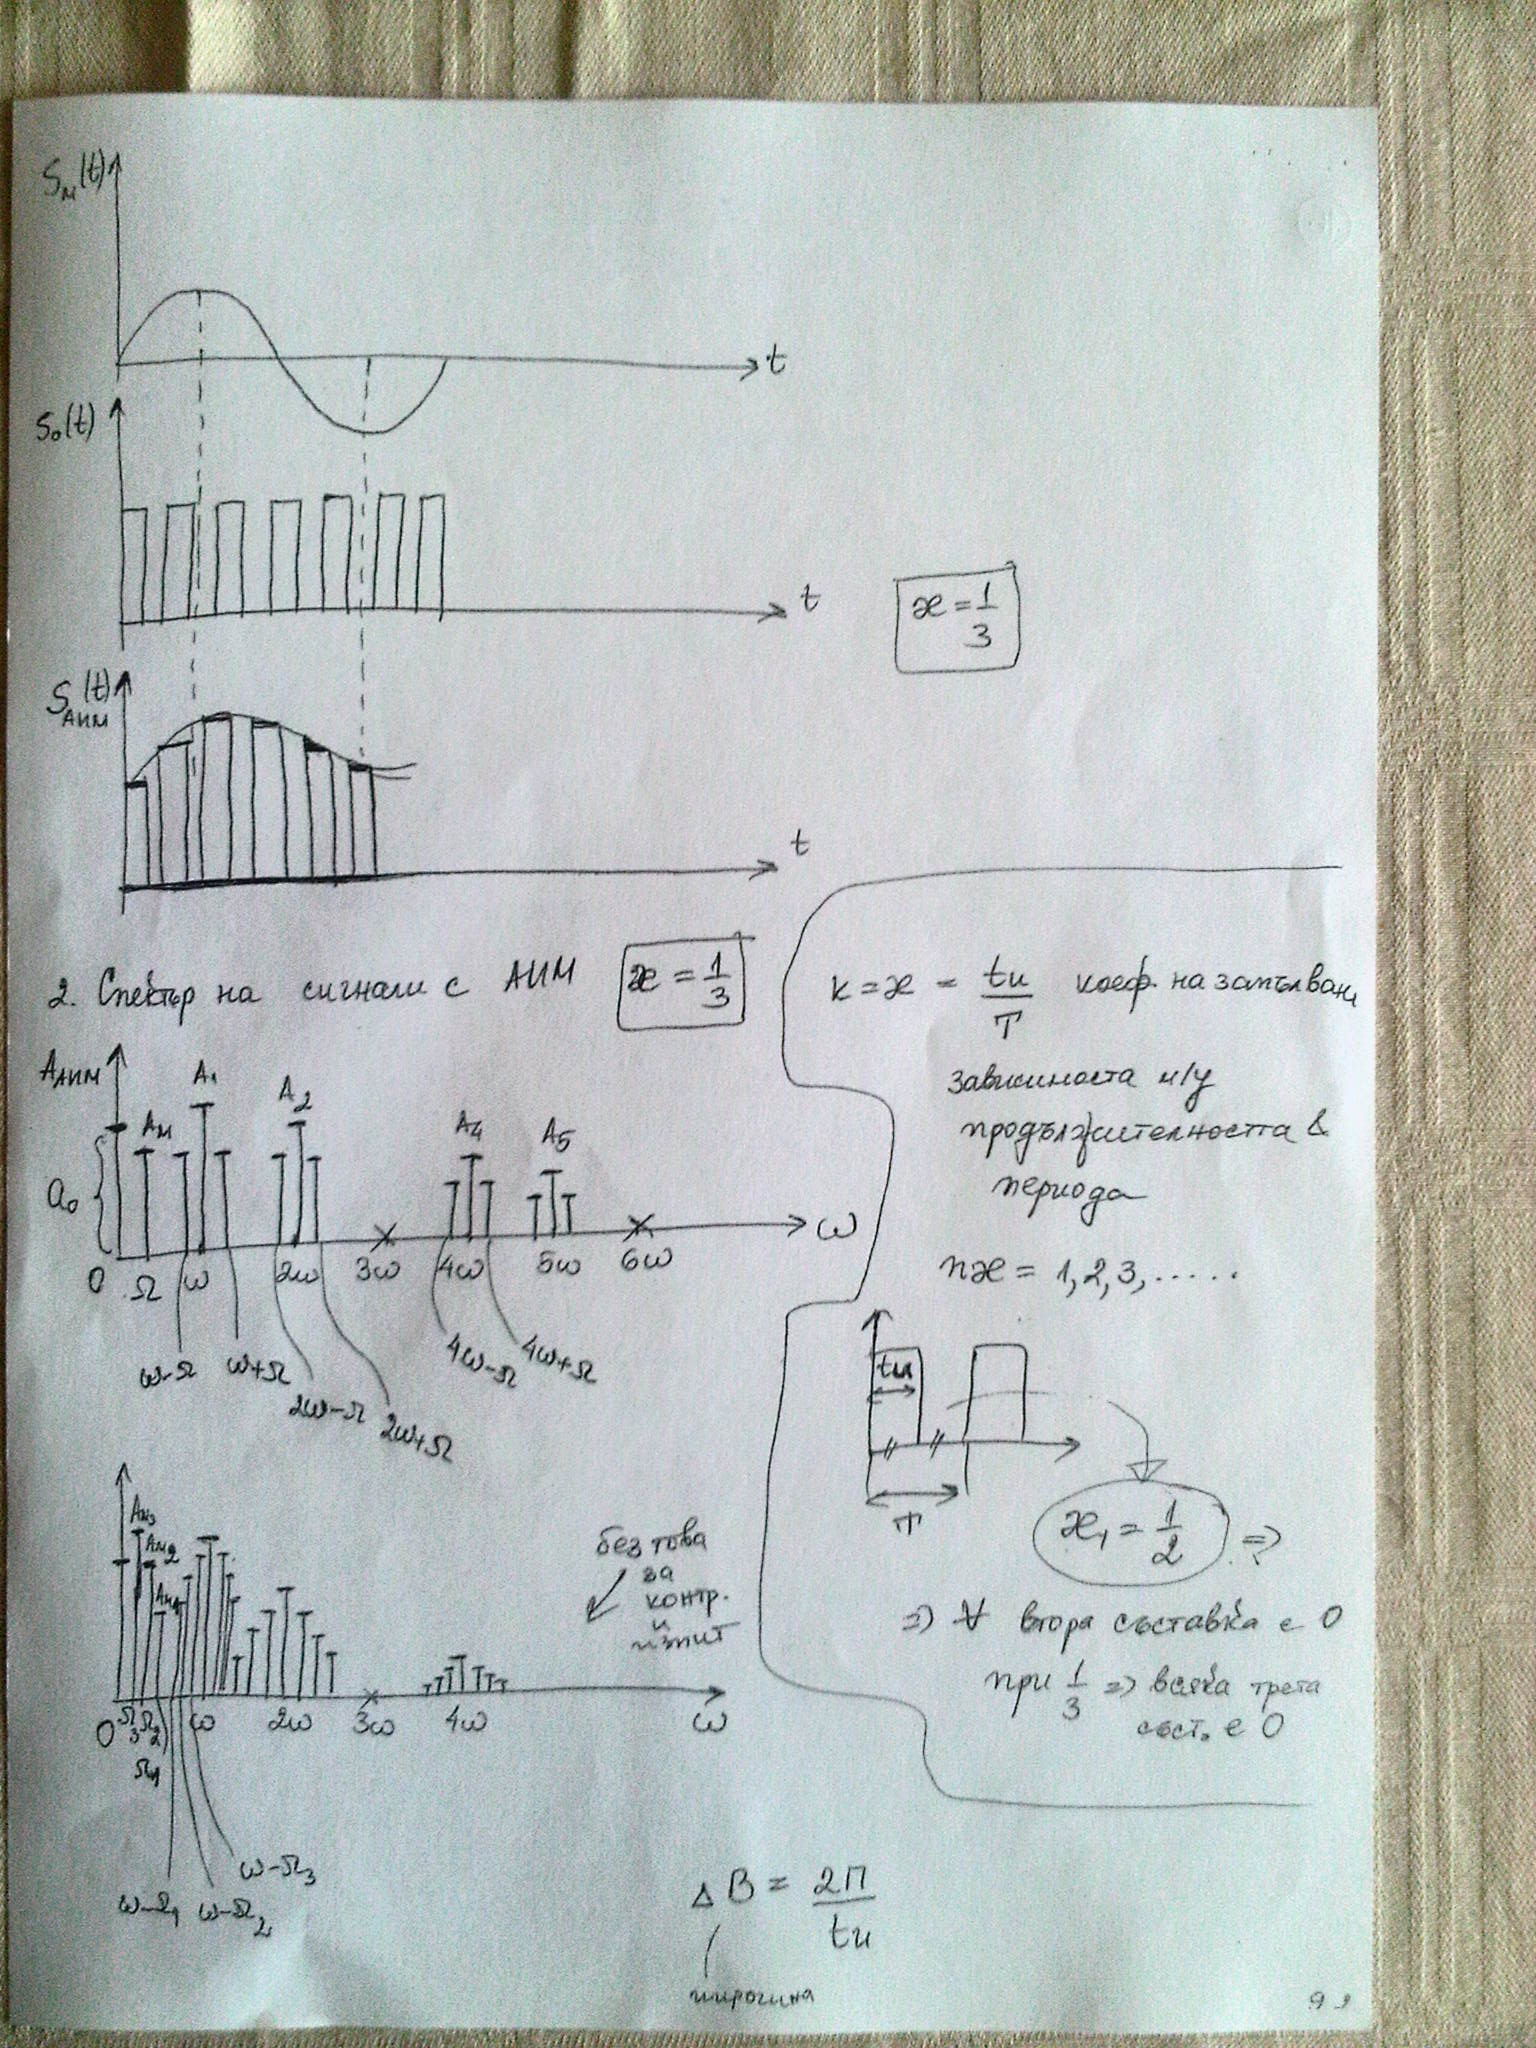 Sм(t)
t
S₀(t)
t
æ = 1/3
S(t)
АИМ
t
2. Спектър на сигнали с АИМ
æ = 1/3
k = æ = tи/T коеф. на запълване
зависимоста м/у
продължителността &
периода
næ = 1, 2, 3, .....
Aаим
Aм
A₁
A₂
A₄
A₅
a₀
0 Ω ω 2ω 3ω 4ω 5ω 6ω ω
ω-Ω ω+Ω 2ω-Ω 2ω+Ω 4ω-Ω 4ω+Ω
tи
T
æ₁ = 1/2 =>
=> ∀ втора съставка е 0
при 1/3 => всяка трета
съст. е 0
Aм3
Aм2
Aм1
без това
за
контр.
и
изпит
0 Ω₃ Ω₂ ω 2ω 3ω 4ω ω
Ω₁
ω-Ω₃
ω-Ω₁ ω-Ω₂
Δ B = 2П/tи
широчина